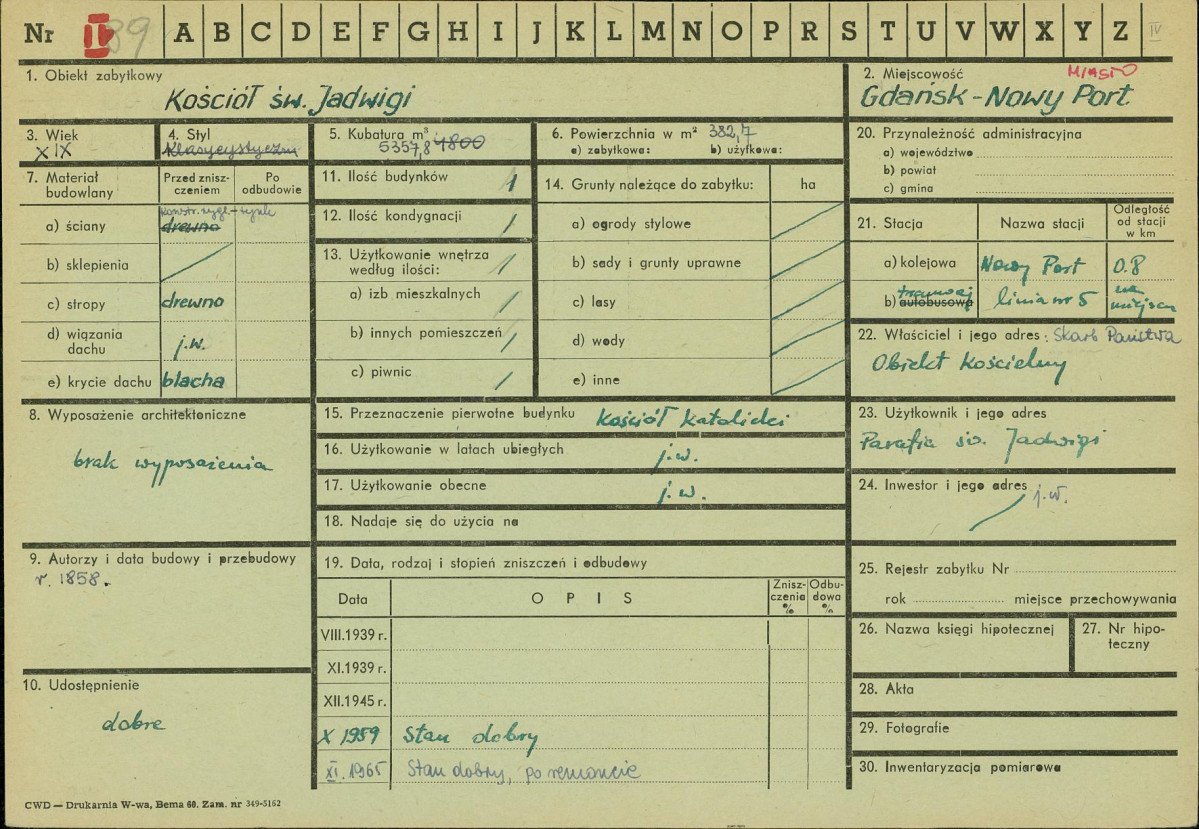 Nr I 89 A B C D E F G H I J K L M N O P R S T U V W X Y Z IV
1. Obiekt zabytkowy
Kościół św. Jadwigi
2. Miejscowość MIASTO
Gdańsk - Nowy Port
3. Wiek
XIX
4. Styl
klasycystyczny
5. Kubatura m³ 4800
5357,8
6. Powierzchnia w m² 382,7
a) zabytkowa: b) użytkowa:
7. Materiał budowlany
Przed znisz-
czeniem
Po
odbudowie
a) ściany
konstr. rygl. - tynk
drewno
b) sklepienia /
c) stropy drewno
d) wiązania
dachu j.w.
e) krycie dachu blacha
8. Wyposażenie architektoniczne
brak wyposażenia
9. Autorzy i data budowy i przebudowy
r. 1858.
10. Udostępnienie
dobre
11. Ilość budynków 1
12. Ilość kondygnacji /
13. Użytkowanie wnętrza
według ilości: /
a) izb mieszkalnych /
b) innych pomieszczeń /
c) piwnic /
14. Grunty należące do zabytku: ha
a) ogrody stylowe /
b) sady i grunty uprawne /
c) lasy /
d) wody /
e) inne /
15. Przeznaczenie pierwotne budynku kościół katolicki
16. Użytkowanie w latach ubiegłych j.w.
17. Użytkowanie obecne j.w.
18. Nadaje się do użycia na
19. Data, rodzaj i stopień zniszczeń i odbudowy
Data OPIS
Znisz-
czenia
%
Odbu-
dowa
%
VIII.1939 r.
XI.1939 r.
XII.1945 r.
X 1959 Stan dobry
XI. 1965 Stan dobry, po remoncie
20. Przynależność administracyjna
a) województwo
b) powiat
c) gmina
21. Stacja Nazwa stacji
Odległość
od stacji
w km
a) kolejowa Nowy Port 0.8
tramwaj
b) autobusowa linia nr 5 na miejscu
22. Właściciel i jego adres: Skarb Państwa
Obiekt kościelny
23. Użytkownik i jego adres
Parafia św. Jadwigi
24. Inwestor i jego adres j.w.
25. Rejestr zabytku Nr
rok miejsce przechowywania
26. Nazwa księgi hipotecznej
27. Nr hipo-
teczny
28. Akta
29. Fotografie
30. Inwentaryzacja pomiarowa
CWD — Drukarnia W-wa, Bema 60. Zam. nr 349-5162